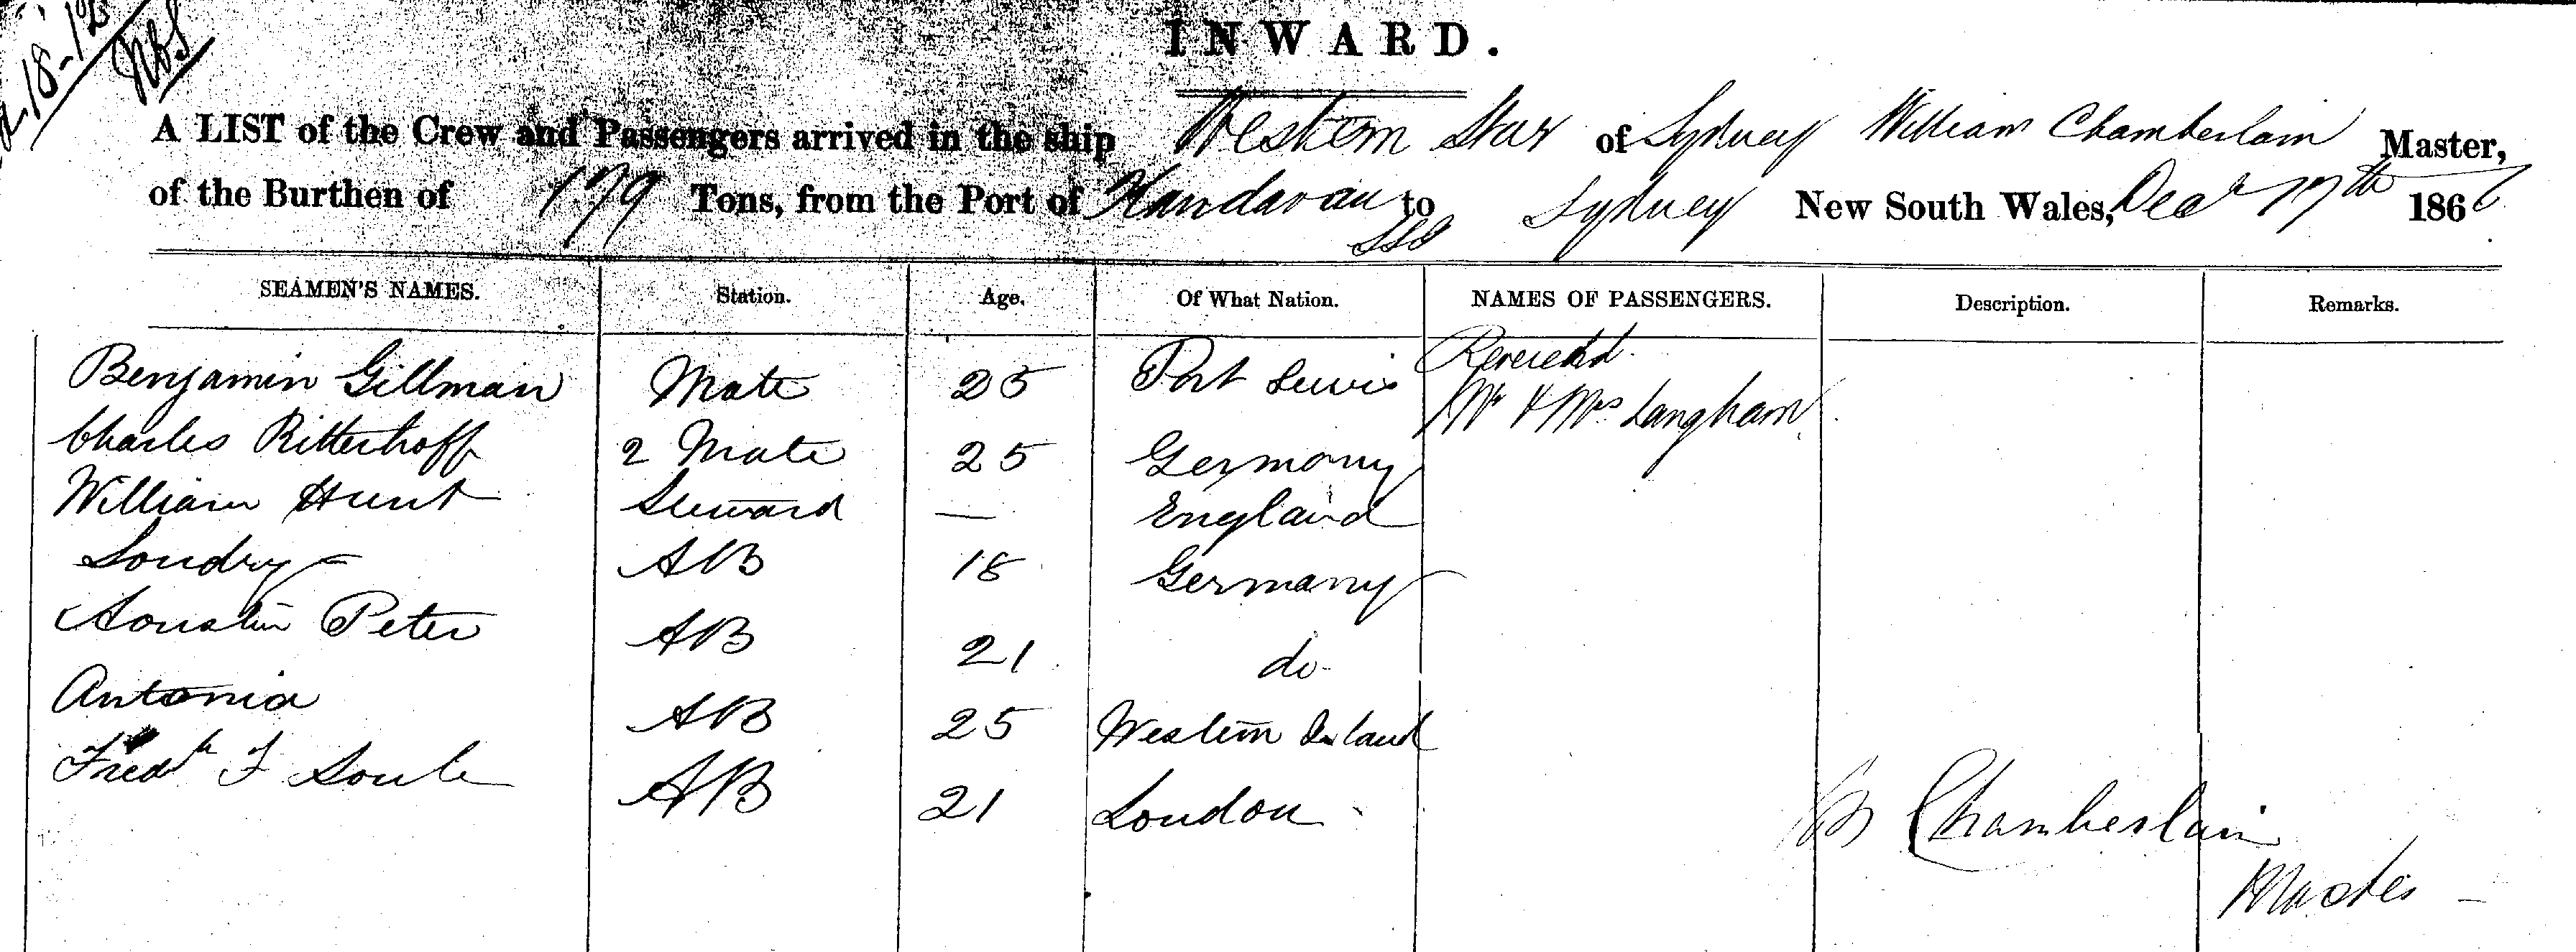 18-12
INWARD.
A LIST of the Crew and Passengers arrived in the ship Western Star of Sydney William Chamberlain Master,
of the Burthen of 179 Tons, from the Port of Kandavau to Sydney New South Wales, Decr 17th 186
SEAMEN'S NAMES. Station. Age. Of What Nation. NAMES OF PASSENGERS. Description. Remarks.
Reverend
Benjamin Gillman Mate 25 Port Lewis Mr & Mrs Langham
Charles Ritterhoff 2 Mate 25 Germany
William Hunt Steward — England
Londry AB 18 Germany
Peter AB 21 do
Antonia AB 25 Western Island
Fredk F Soule AB 21 London
W Chamberlain
Master